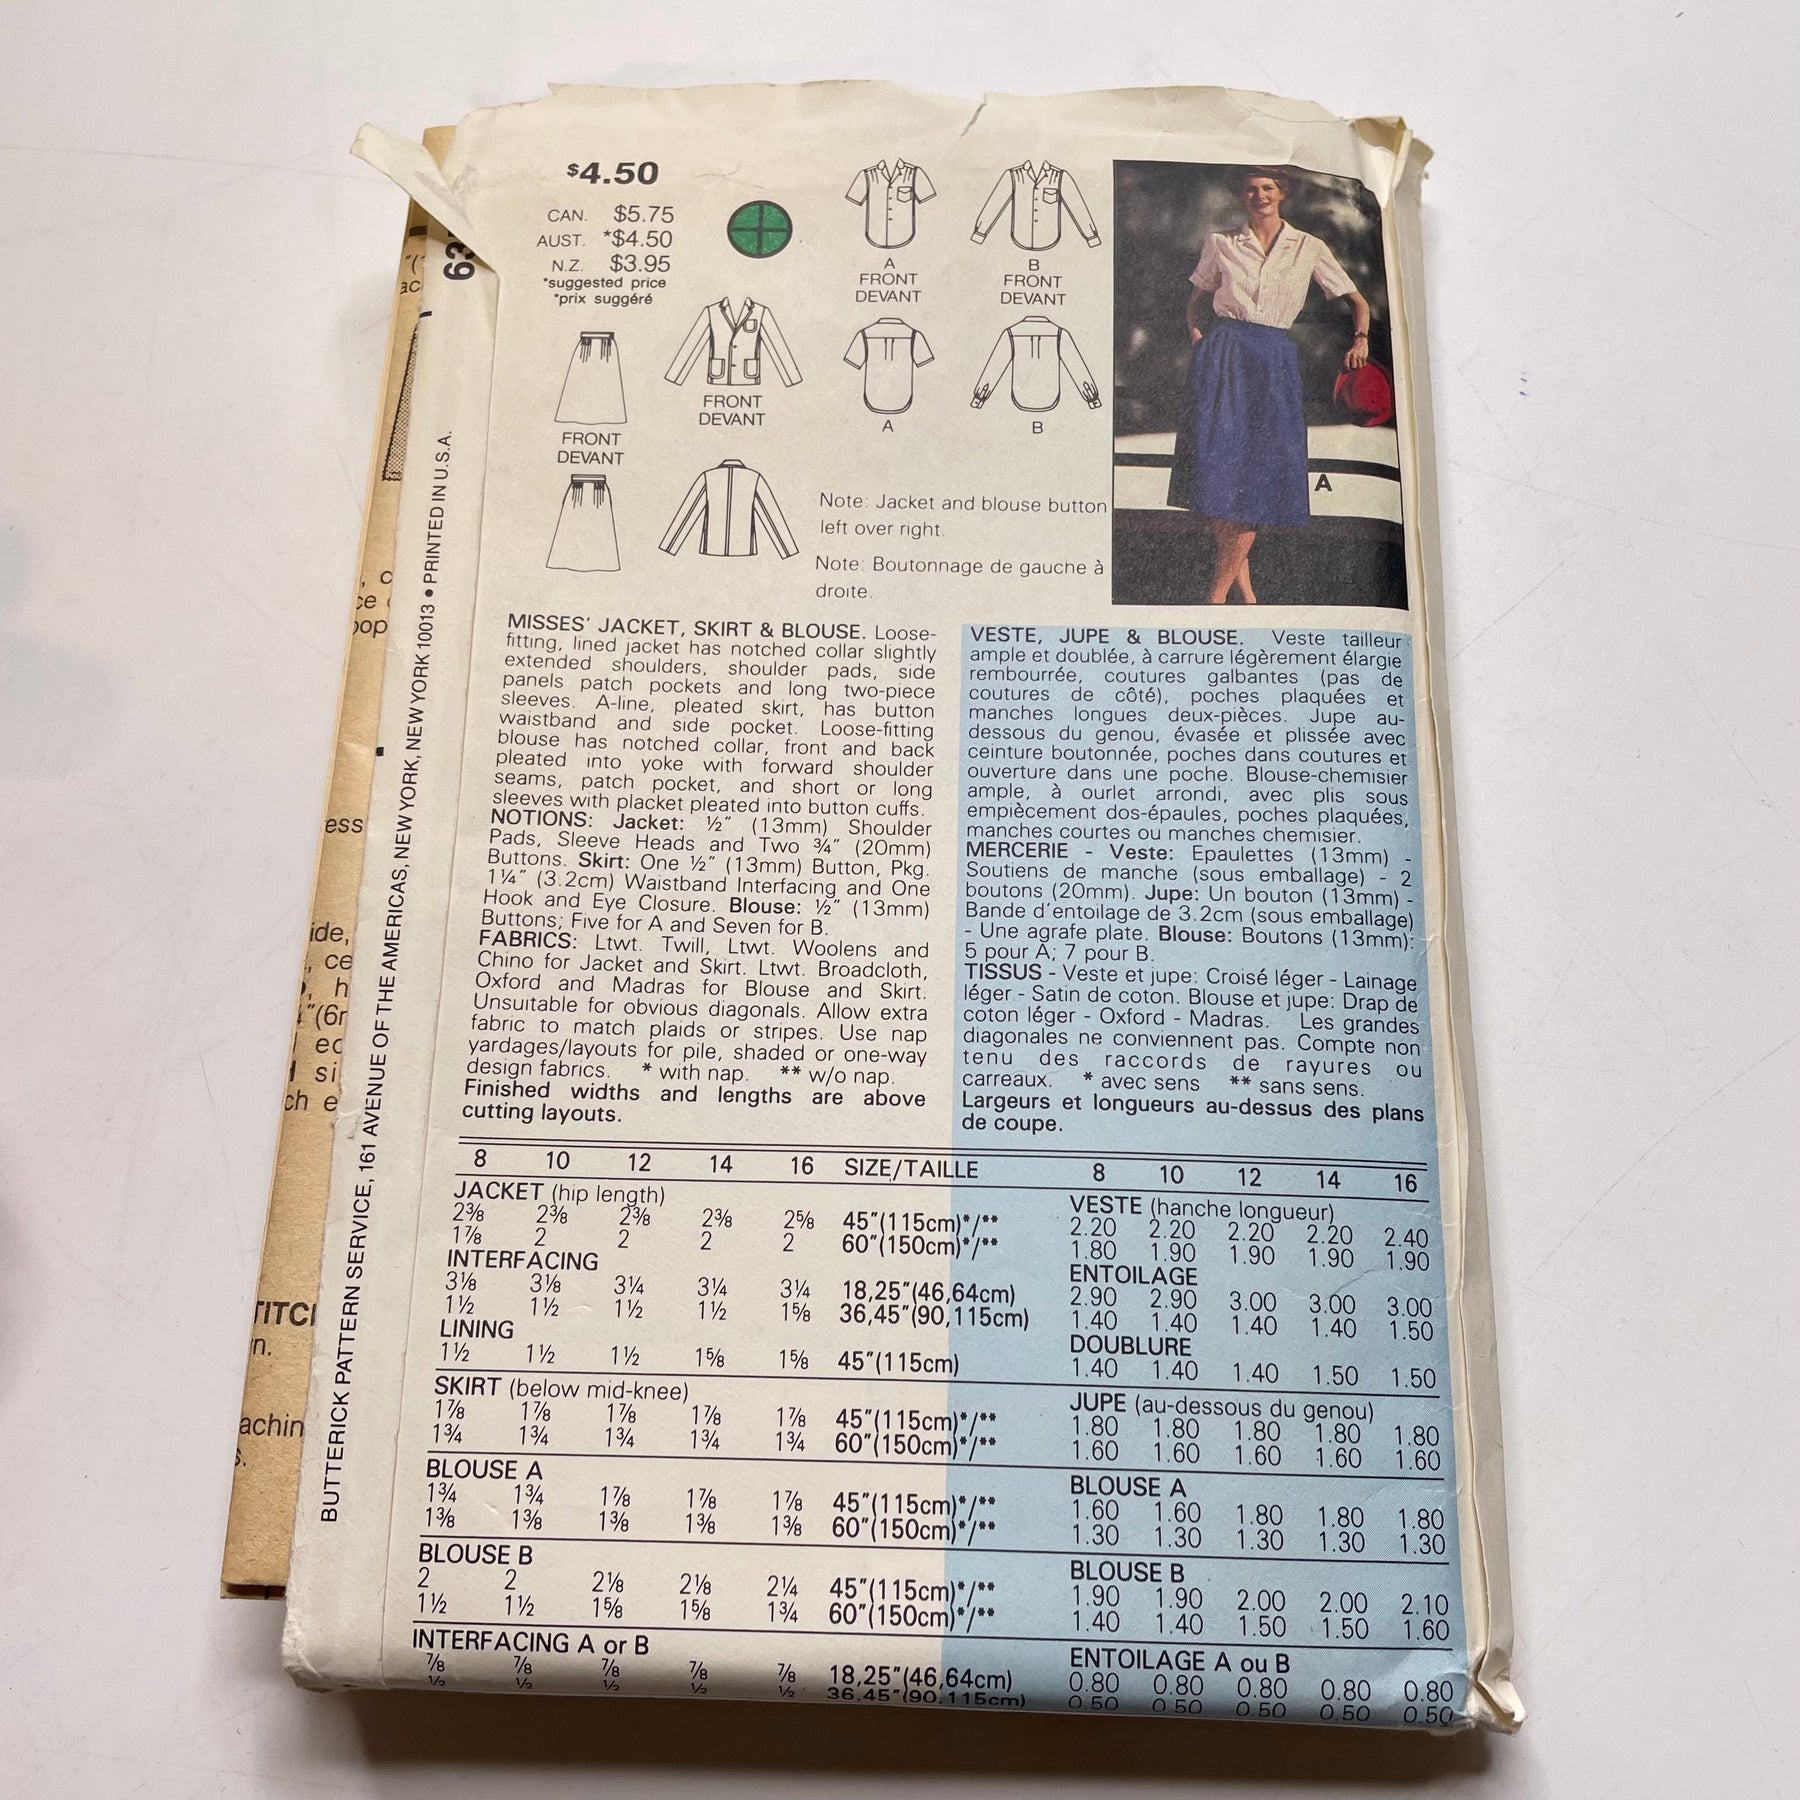 $4.50
CAN. $5.75
AUST. *$4.50
N.Z. $3.95
*suggested price
*prix suggéré
A
FRONT
DEVANT
B
FRONT
DEVANT
FRONT
DEVANT
FRONT
DEVANT
A
B
A
Note: Jacket and blouse button
left over right.
Note: Boutonnage de gauche à
droite.
BUTTERICK PATTERN SERVICE, 161 AVENUE OF THE AMERICAS, NEW YORK, NEW YORK 10013 • PRINTED IN U.S.A.
MISSES' JACKET, SKIRT & BLOUSE. Loose-
fitting, lined jacket has notched collar slightly
extended shoulders, shoulder pads, side
panels patch pockets and long two-piece
sleeves. A-line, pleated skirt, has button
waistband and side pocket. Loose-fitting
blouse has notched collar, front and back
pleated into yoke with forward shoulder
seams, patch pocket, and short or long
sleeves with placket pleated into button cuffs.
NOTIONS: Jacket: ½" (13mm) Shoulder
Pads, Sleeve Heads and Two ¾" (20mm)
Buttons. Skirt: One ½" (13mm) Button, Pkg.
1¼" (3.2cm) Waistband Interfacing and One
Hook and Eye Closure. Blouse: ½" (13mm)
Buttons; Five for A and Seven for B.
FABRICS: Ltwt. Twill, Ltwt. Woolens and
Chino for Jacket and Skirt. Ltwt. Broadcloth,
Oxford and Madras for Blouse and Skirt.
Unsuitable for obvious diagonals. Allow extra
fabric to match plaids or stripes. Use nap
yardages/layouts for pile, shaded or one-way
design fabrics. * with nap. ** w/o nap.
Finished widths and lengths are above
cutting layouts.
VESTE, JUPE & BLOUSE. Veste tailleur
ample et doublée, à carrure légèrement élargie
rembourrée, coutures galbantes (pas de
coutures de côté), poches plaquées et
manches longues deux-pièces. Jupe au-
dessous du genou, évasée et plissée avec
ceinture boutonnée, poches dans coutures et
ouverture dans une poche. Blouse-chemisier
ample, à ourlet arrondi, avec plis sous
empiècement dos-épaules, poches plaquées,
manches courtes ou manches chemisier.
MERCERIE - Veste: Epaulettes (13mm) -
Soutiens de manche (sous emballage) - 2
boutons (20mm). Jupe: Un bouton (13mm) -
Bande d'entoilage de 3.2cm (sous emballage)
- Une agrafe plate. Blouse: Boutons (13mm):
5 pour A; 7 pour B.
TISSUS - Veste et jupe: Croisé léger - Lainage
léger - Satin de coton. Blouse et jupe: Drap de
coton léger - Oxford - Madras. Les grandes
diagonales ne conviennent pas. Compte non
tenu des raccords de rayures ou
carreaux. * avec sens ** sans sens.
Largeurs et longueurs au-dessus des plans
de coupe.
8 10 12 14 16 SIZE/TAILLE 8 10 12 14 16
JACKET (hip length) VESTE (hanche longueur)
2⅜ 2⅜ 2⅜ 2⅜ 2⅝ 45"(115cm)*/** 2.20 2.20 2.20 2.20 2.40
1⅞ 2 2 2 2 60"(150cm)*/** 1.80 1.90 1.90 1.90 1.90
INTERFACING ENTOILAGE
3⅛ 3⅛ 3¼ 3¼ 3¼ 18,25"(46,64cm) 2.90 2.90 3.00 3.00 3.00
1½ 1½ 1½ 1½ 1⅝ 36,45"(90,115cm) 1.40 1.40 1.40 1.40 1.50
LINING DOUBLURE
1½ 1½ 1½ 1⅝ 1⅝ 45"(115cm) 1.40 1.40 1.40 1.50 1.50
SKIRT (below mid-knee) JUPE (au-dessous du genou)
1⅞ 1⅞ 1⅞ 1⅞ 1⅞ 45"(115cm)*/** 1.80 1.80 1.80 1.80 1.80
1¾ 1¾ 1¾ 1¾ 1¾ 60"(150cm)*/** 1.60 1.60 1.60 1.60 1.60
BLOUSE A BLOUSE A
1¾ 1¾ 1⅞ 1⅞ 1⅞ 45"(115cm)*/** 1.60 1.60 1.80 1.80 1.80
1⅜ 1⅜ 1⅜ 1⅜ 1⅜ 60"(150cm)*/** 1.30 1.30 1.30 1.30 1.30
BLOUSE B BLOUSE B
2 2 2⅛ 2⅛ 2¼ 45"(115cm)*/** 1.90 1.90 2.00 2.00 2.10
1½ 1½ 1⅝ 1⅝ 1¾ 60"(150cm)*/** 1.40 1.40 1.50 1.50 1.60
INTERFACING A or B ENTOILAGE A ou B
⅞ ⅞ ⅞ ⅞ ⅞ 18,25"(46,64cm) 0.80 0.80 0.80 0.80 0.80
½ ½ ½ ½ ½ 36,45"(90,115cm) 0.50 0.50 0.50 0.50 0.50